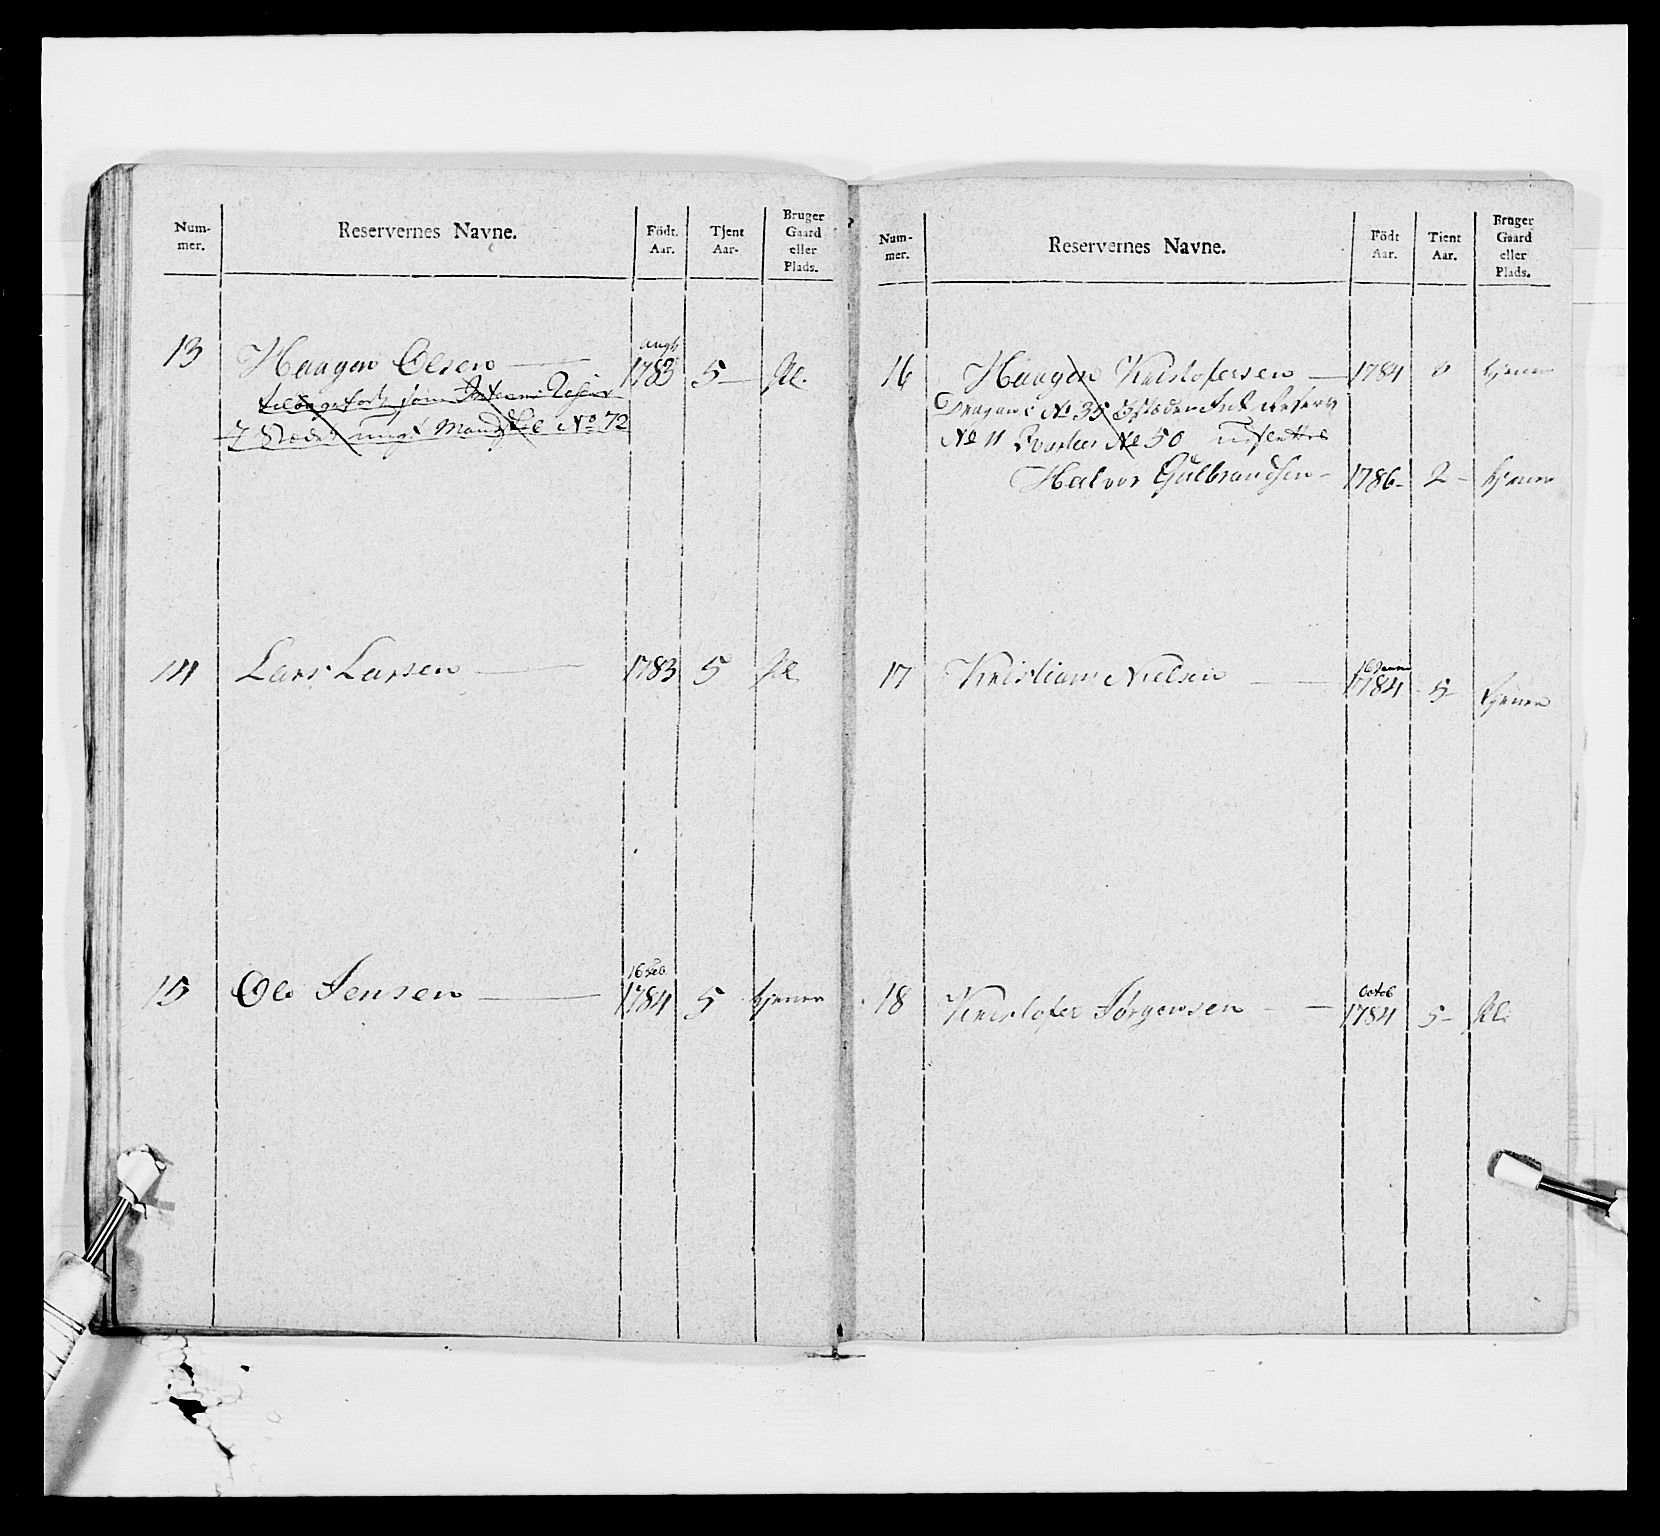 Num-
mer.
Reservernes Navne.
Födt.
Aar.
Tjent
Aar.
Bruger
Gaard
eller
Plads.
13 Haagen Olsen — augs 1783 5 —
som
7 ungt Mandskb No 72
14 Lars Larsen — 1783 5
15 Ole Jensen — 16 Feb 1784 5 tjener
Num-
mer.
Reservernes Navne.
Födt
Aar.
Tient
Aar.
Bruger
Gaard
eller
Plads.
16 Haagen Kristofersen — 1784 tjener
Dragone No 35
No 11 No 50
Halvor Gulbrandsen — 1786 — 2 — tjener
17 Kristian Nielsen — 16 Janu 1784 5 tjener
18 Kristofer Jörgensen — Octob 1784 5 —